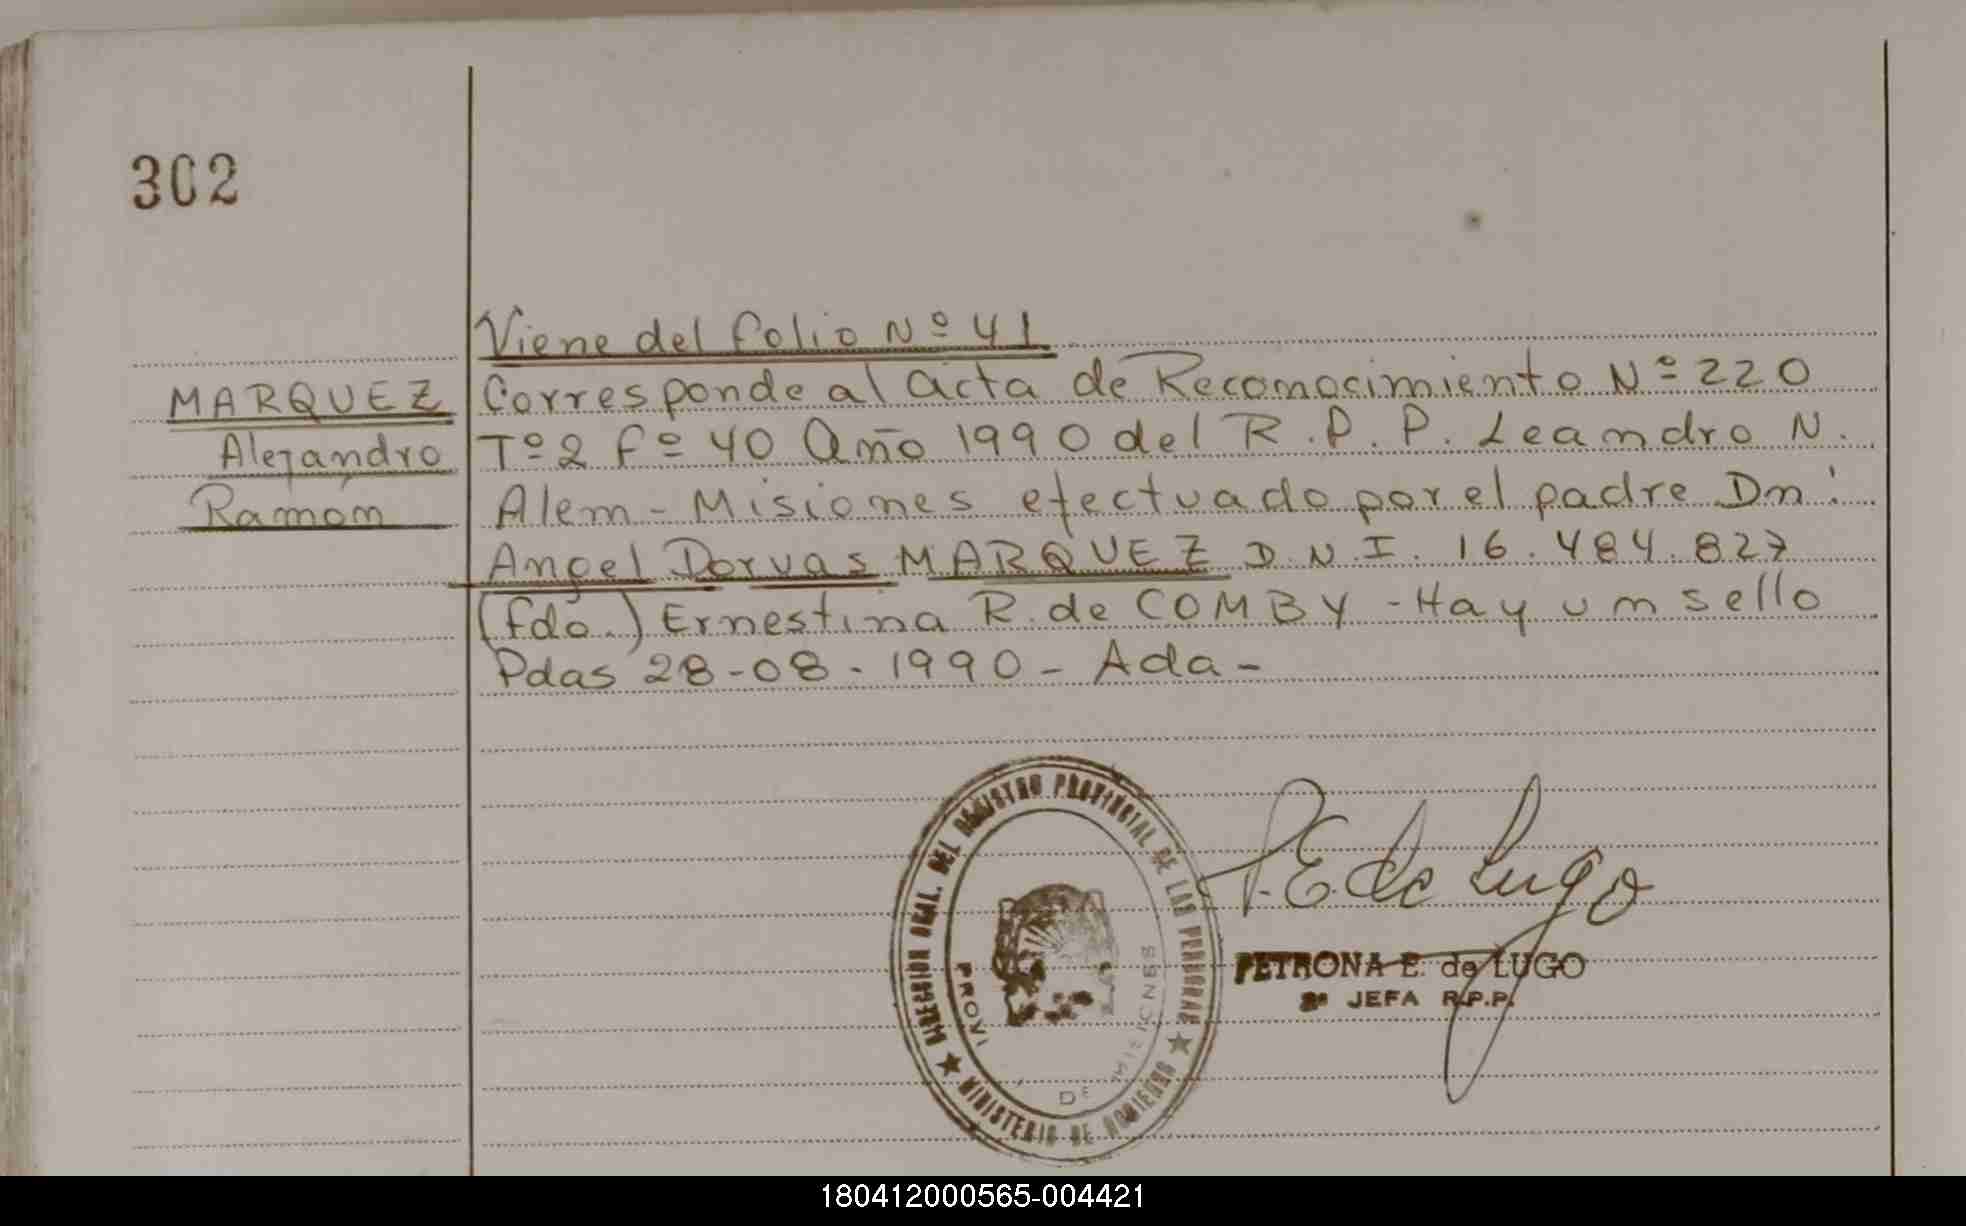 302
Viene del folio Nº 41
MARQUEZ
Alejandro
Ramón
Corresponde al acta de Reconocimiento Nº 220
Tº 2 fº 40 Año 1990 del R.P.P. Leandro N.
Alem - Misiones efectuado por el padre Dn:
Angel Dorvas MARQUEZ D.N.I. 16.484.827
(fdo.) Ernestina R. de COMBY - Hay un sello
Pdas 28-08-1990 - Ada -
DIRECCION GRAL. DEL REGISTRO PROVINCIAL DE LAS PERSONAS
MINISTERIO DE GOBIERNO
PROVI DE MISIONES
P. E. de Lugo
PETRONA E. de LUGO
2ª JEFA R.P.P.
180412000565-004421